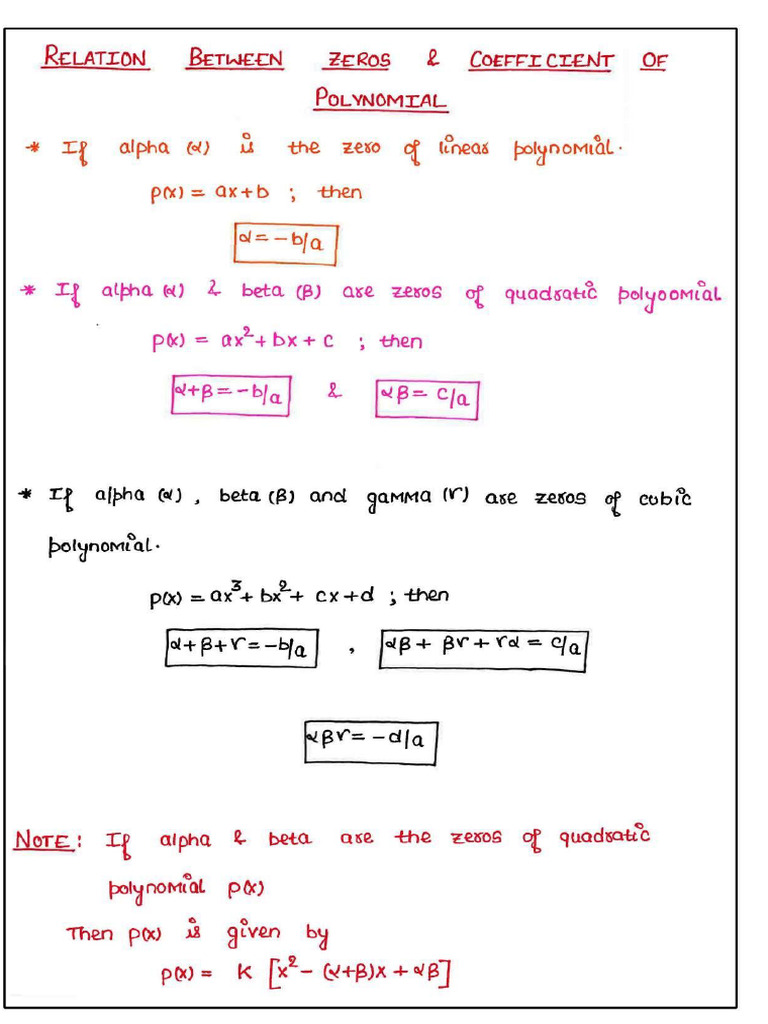 RELATION BETWEEN ZEROS & COEFFICIENT OF
POLYNOMIAL
* If alpha (α) is the zero of linear polynomial.
p(x) = ax+b ; then
α = -b/a
* If alpha (α) & beta (β) are zeros of quadratic polyoomial
p(x) = ax²+bx+c ; then
α+β = -b/a & αβ = c/a
* If alpha (α), beta (β) and gamma (r) are zeros of cubic
polynomial.
p(x) = ax³+bx²+ cx+d ; then
α+β+r = -b/a , αβ + βr + rα = c/a
αβr = -d/a
NOTE: If alpha & beta are the zeros of quadratic
polynomial p(x)
Then p(x) is given by
p(x) = K [x² - (α+β)x + αβ]